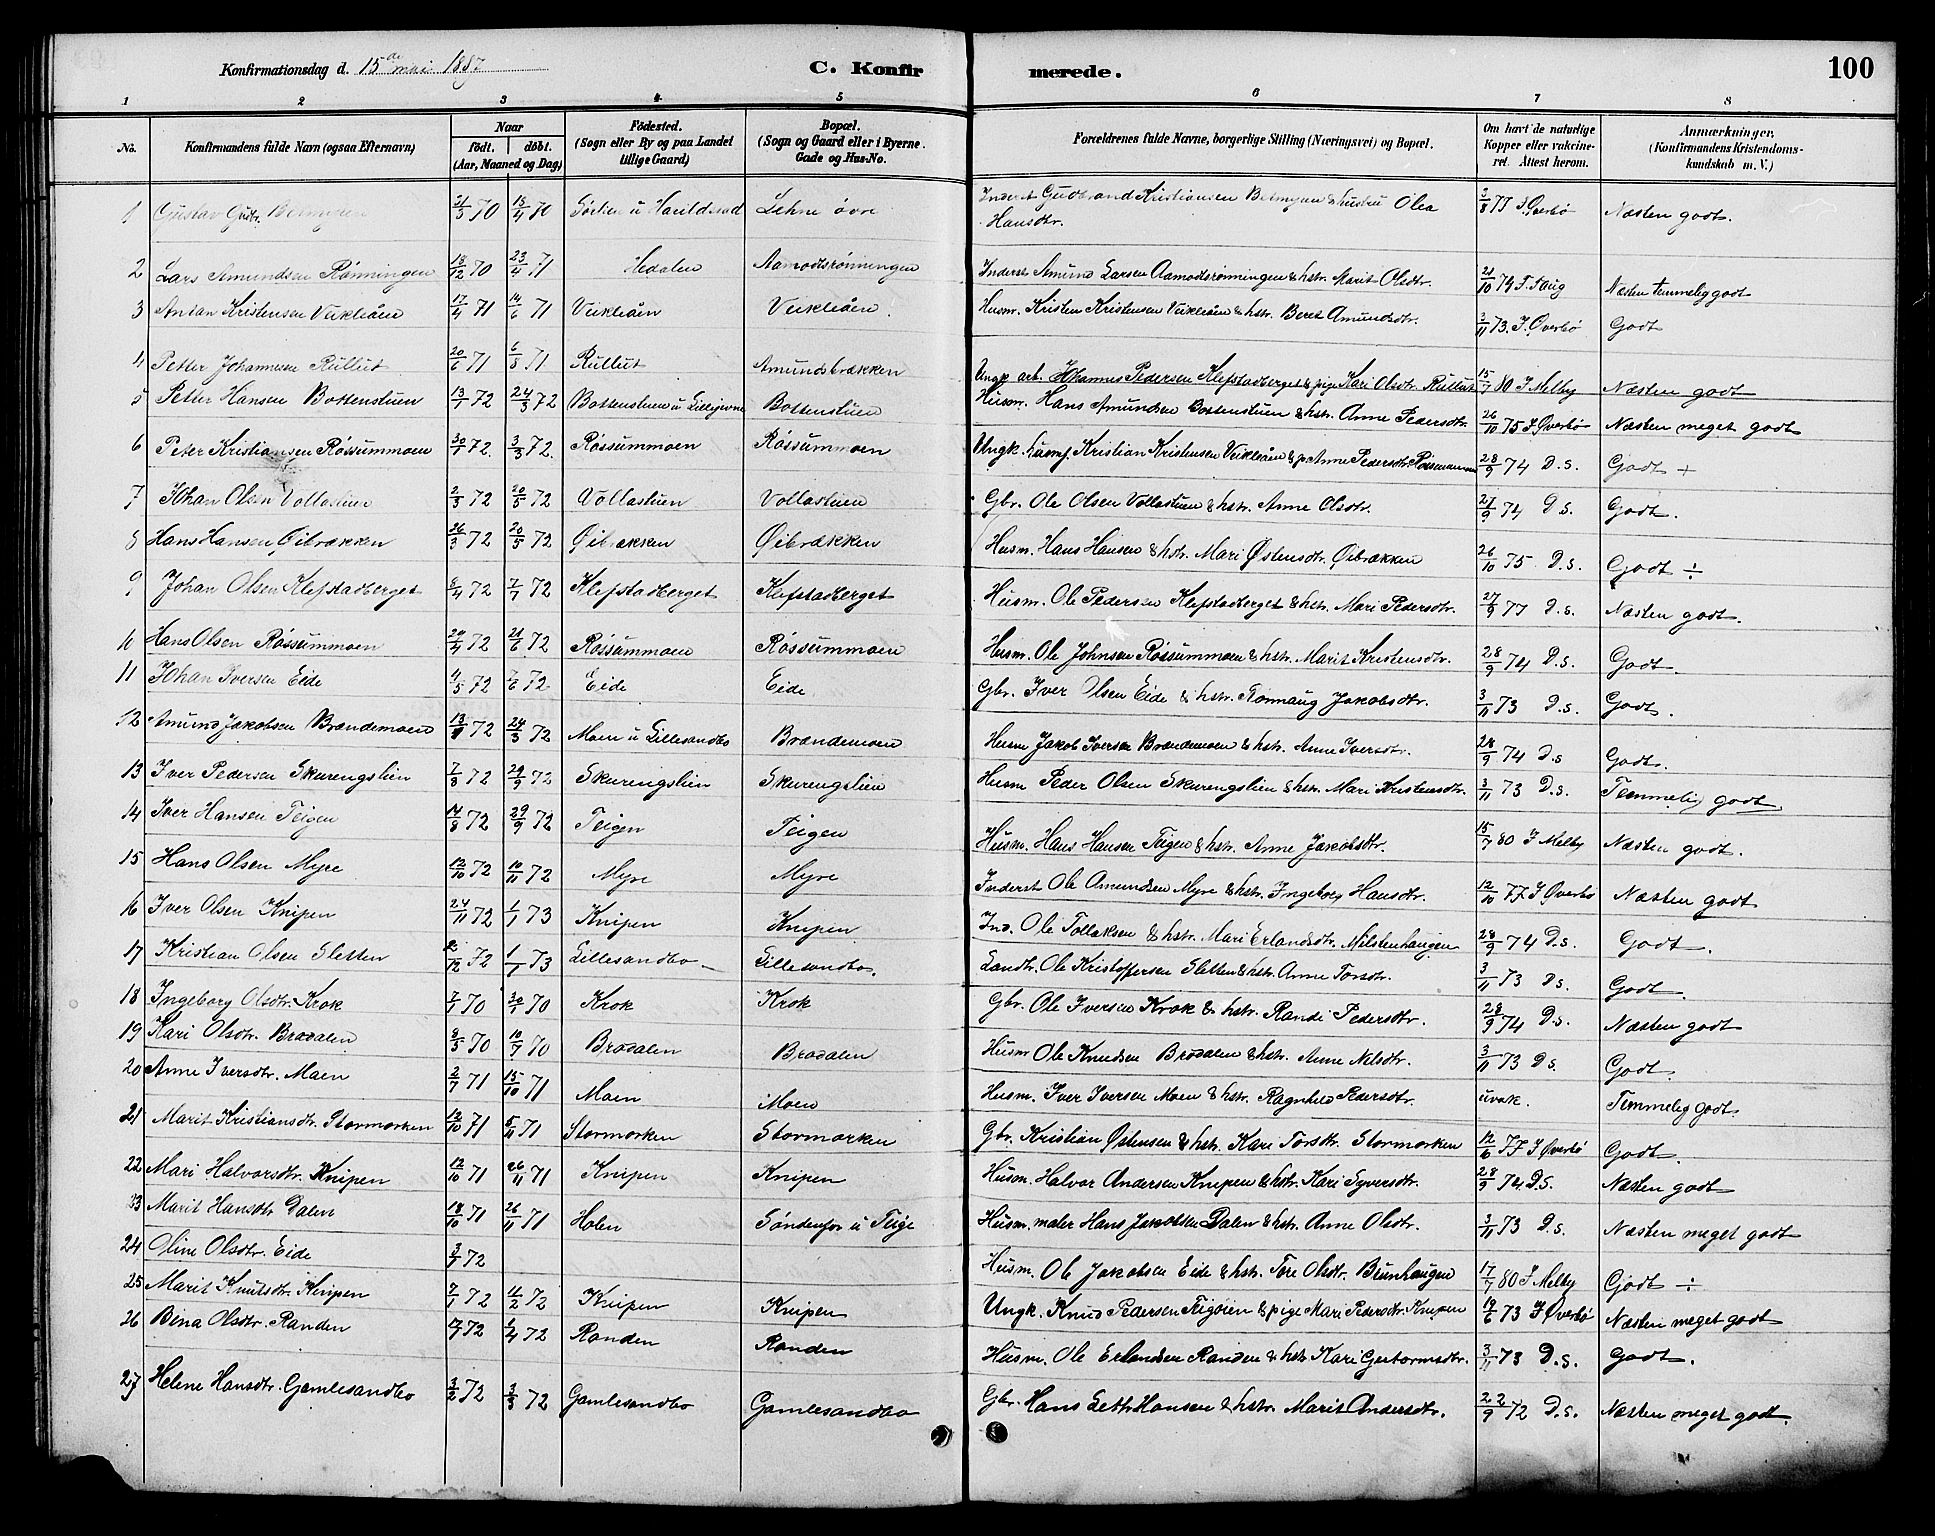 Konfirmationsdag d. 15de mai 1887 C. Konfirmerede. 100
1 2 3 4 5 6 7 8
No. Konfirmandens fulde Navn (ogsaa Efternavn) Naar født. døbt. (Aar, Maaned og Dag) Fødested. (Sogn eller By og paa Landet tillige Gaard) Bopæl. (Sogn og Gaard eller i Byerne. Gade og Hus-No. Forældrenes fulde Navne, borgerlige Stilling (Næringsvei) og Bopæl. Om havt de naturlige Kopper eller vakcineret. Attest herom. Anmærkninger. (Konfirmandens Kristendomskundskab m. V.)
1 Gustav Gudbr. 21/3 70 13/4 70 Lehne øvre Inderst Gudbrand Kristiansen & hustru Olea Hansdtr. 3/8 77 J Øverbø Næsten godt.
2 Lars Amundsen Rønningen 18/12 70 23/4 71 Hedalen Aamodtsrønningen Inderst Amund Larsen Aamodsrønningen & hstr. Marit Olsdtr. 21/10 79 Næsten temmelig godt
3 Kristensen Veikleåen 17/4 71 14/6 71 Veikleåen Veikleåen. Husm. Kristen Kristensen Veikleåen & hstr. Beret Amundsdtr. 3/11 73. J. Øverbø Godt
4 Petter Johannesen Rullut 20/6 71 6/8 71 Rullut Amundsbrækken Ungk. arb. Johannes Pedersen Klefstadberget & pige Kari Olsdtr. Rullut 15/7 80 J. Melby Næsten godt
5 Petter Hansen Bottenstuen 13/1 72 24/3 72 Bottenstuen u Bottenstuen Husm. Hans Amundsen Bottenstuen & hstr. Anne Pedersdtr. 26/10 75 J Øverbø Næsten meget godt
6 Peter Kristiansen Røssummoen 30/1 72. 3/3 72. Røssummoen Røssummoen Ungk. Kristian Kristensen Veikleåen & p. Anne Pedersdtr. 28/9 74 D.s. Godt +
7 Johan Olsen Vollastuen 2/3 72 20/5 72 Vollastuen Vollastuen Gbr. Ole Olsen Vollastuen & hstr. Anne Olsdtr. 27/9 74 D s. Godt.
8 Hans Hansen Øibrækken 26/3 72 20/5 72 Øibrækken Øibrækken Husm. Hans Hansen & hstr. Mari Østensdtr. Øibrækken 26/10 75. D.s. Godt ÷
9 Johan Olsen Klefstadberget 8/4 72 7/7 72 Klefstadberget Klefstadberget Husm. Ole Pedersen Klefstadberget & hstr. Mari Pedersdtr. 27/9 77 D.s. Næsten godt.
10 Hans Olsen Røssummoen 29/4 72 21/6 72 Røssummoen Røssummoen Husm. Ole Johnsen Røssummoen & hstr. Marit Kristensdtr. 28/9 74 D.s. Godt
11 Johan Iversen Eide 4/5 72 7/6 72 Eide Eide Gbr. Iver Olsen Eide & hstr. Rønnaug Jakobsdtr. 3/11 73 D.s. Godt.
12 Amund Jakobsen Brændemoen 13/1 72 24/3 72 Moen u Lillesandbo Brændemoen Husm Jakob Iversen Brændemoen & hstr. Anne Iversdtr. 28/9 74 D.s Godt.
13 Iver Pedersen Skurengslien 7/8 72 29/9 72 Skurengslien Skurengslien Husm Peder Olsen Skurengslien & hstr. Mari Kristensdtr. 3/11 73 D.s. Temmelig godt
14 Iver Hansen Teigen 14/8 72 29/9 72 Teigen Teigen Husm. Hans Hansen Teigen & hstr. Anne Jakobsdtr. 15/7 80 J Melby Næsten godt.
15 Hans Olsen Myre 12/10 72 10/11 72 Myre Myre Inderst Ole Amundsen Myre & hstr. Ingeborg Hansdtr. 12/10 77 J Øverbø Næsten godt
16 Iver Olsen Knipen 24/11 72 1/1 73 Knipen Knipen Ind. Ole Tollaksen & hstr. Mari Erlandsdtr. Milstenhaugen 28/9 74 D.s. Godt.
17 Kristian Olsen Sletten 2/12 72 1/1 73 Lillesandbo Lillesandbo. Landh. Ole Kristoffersen Sletten & hstr. Anne Torsdtr. 3/11 73 Ds. Godt.
18 Ingeborg Olsdtr. Krok 7/1 70 30/1 70 Krok Krok Gbr. Ole Iversen Krok & hstr. Randi Pedersdtr. 28/9 74 D.s. Næsten godt
19 Kari Olsdtr. Brodalen 8/5 70 10/7 70 Brodalen Brodalen Husm Ole Knudsen Brodalen & hstr. Anne Nelsdtr. 3/11 73 Ds. Godt.
20 Anne Iversdtr. Moen 2/7 71 15/10 71 Moen Moen Husm. Iver Iversen Moen & hstr. Ragnhild Pedersdtr. uvak. Temmelig godt.
21 Marit Kristiansdtr. Stormorken 12/10 71 5/11 71 Stormorken Stormorken Gbr. Kristian Østensen & hstr. Kari Torsdtr. Stormorken 12/6 77 J Øverbø Godt.
22 Mari Halvorsdtr. Knipen 12/10 71 26/11 71 Knipen Knipen Husm. Halvor Andersen Knipen & hstr. Kari Syversdtr. 28/9 74. D.s. Næsten godt
23 Marit Hansdtr. Dalen 18/10 71 26/11 71 Holen u Teige Husm. maler Hans Jakobsen Dalen & hstr. Anne Olsdtr. 3/11 73 D.s. Næsten meget godt
24 Oline Olsdtr. Eide 3/1 72 Husm. Ole Jakobsen Eide & hstr. Tore Olsdtr. Brunhaugen 17/7 80 J Melby Godt ÷
25 Marit Knutsdtr. Knipen 7/1 72 11/2 72 Knipen Knipen Ungk. Knud Pedersen & pige Mari Pedersdtr. Knipen 19/6 73 J Øverbø Næsten meget godt
26 Bina Olsdtr. Randen 72 1/4 72 Randen Randen Husm. Ole Erlandsen Randen & hstr. Kari Guttormsdtr. 3/11 73 D.s. Godt.
27 Helene Hansdtr. Gamlesandbo 3/2 72 3/3 72 Gamlesandbo Gamlesandbo Gbr. Hans Hansen & hstr. Marit Andersdtr. 22/9 72 D.s. Næsten meget godt.